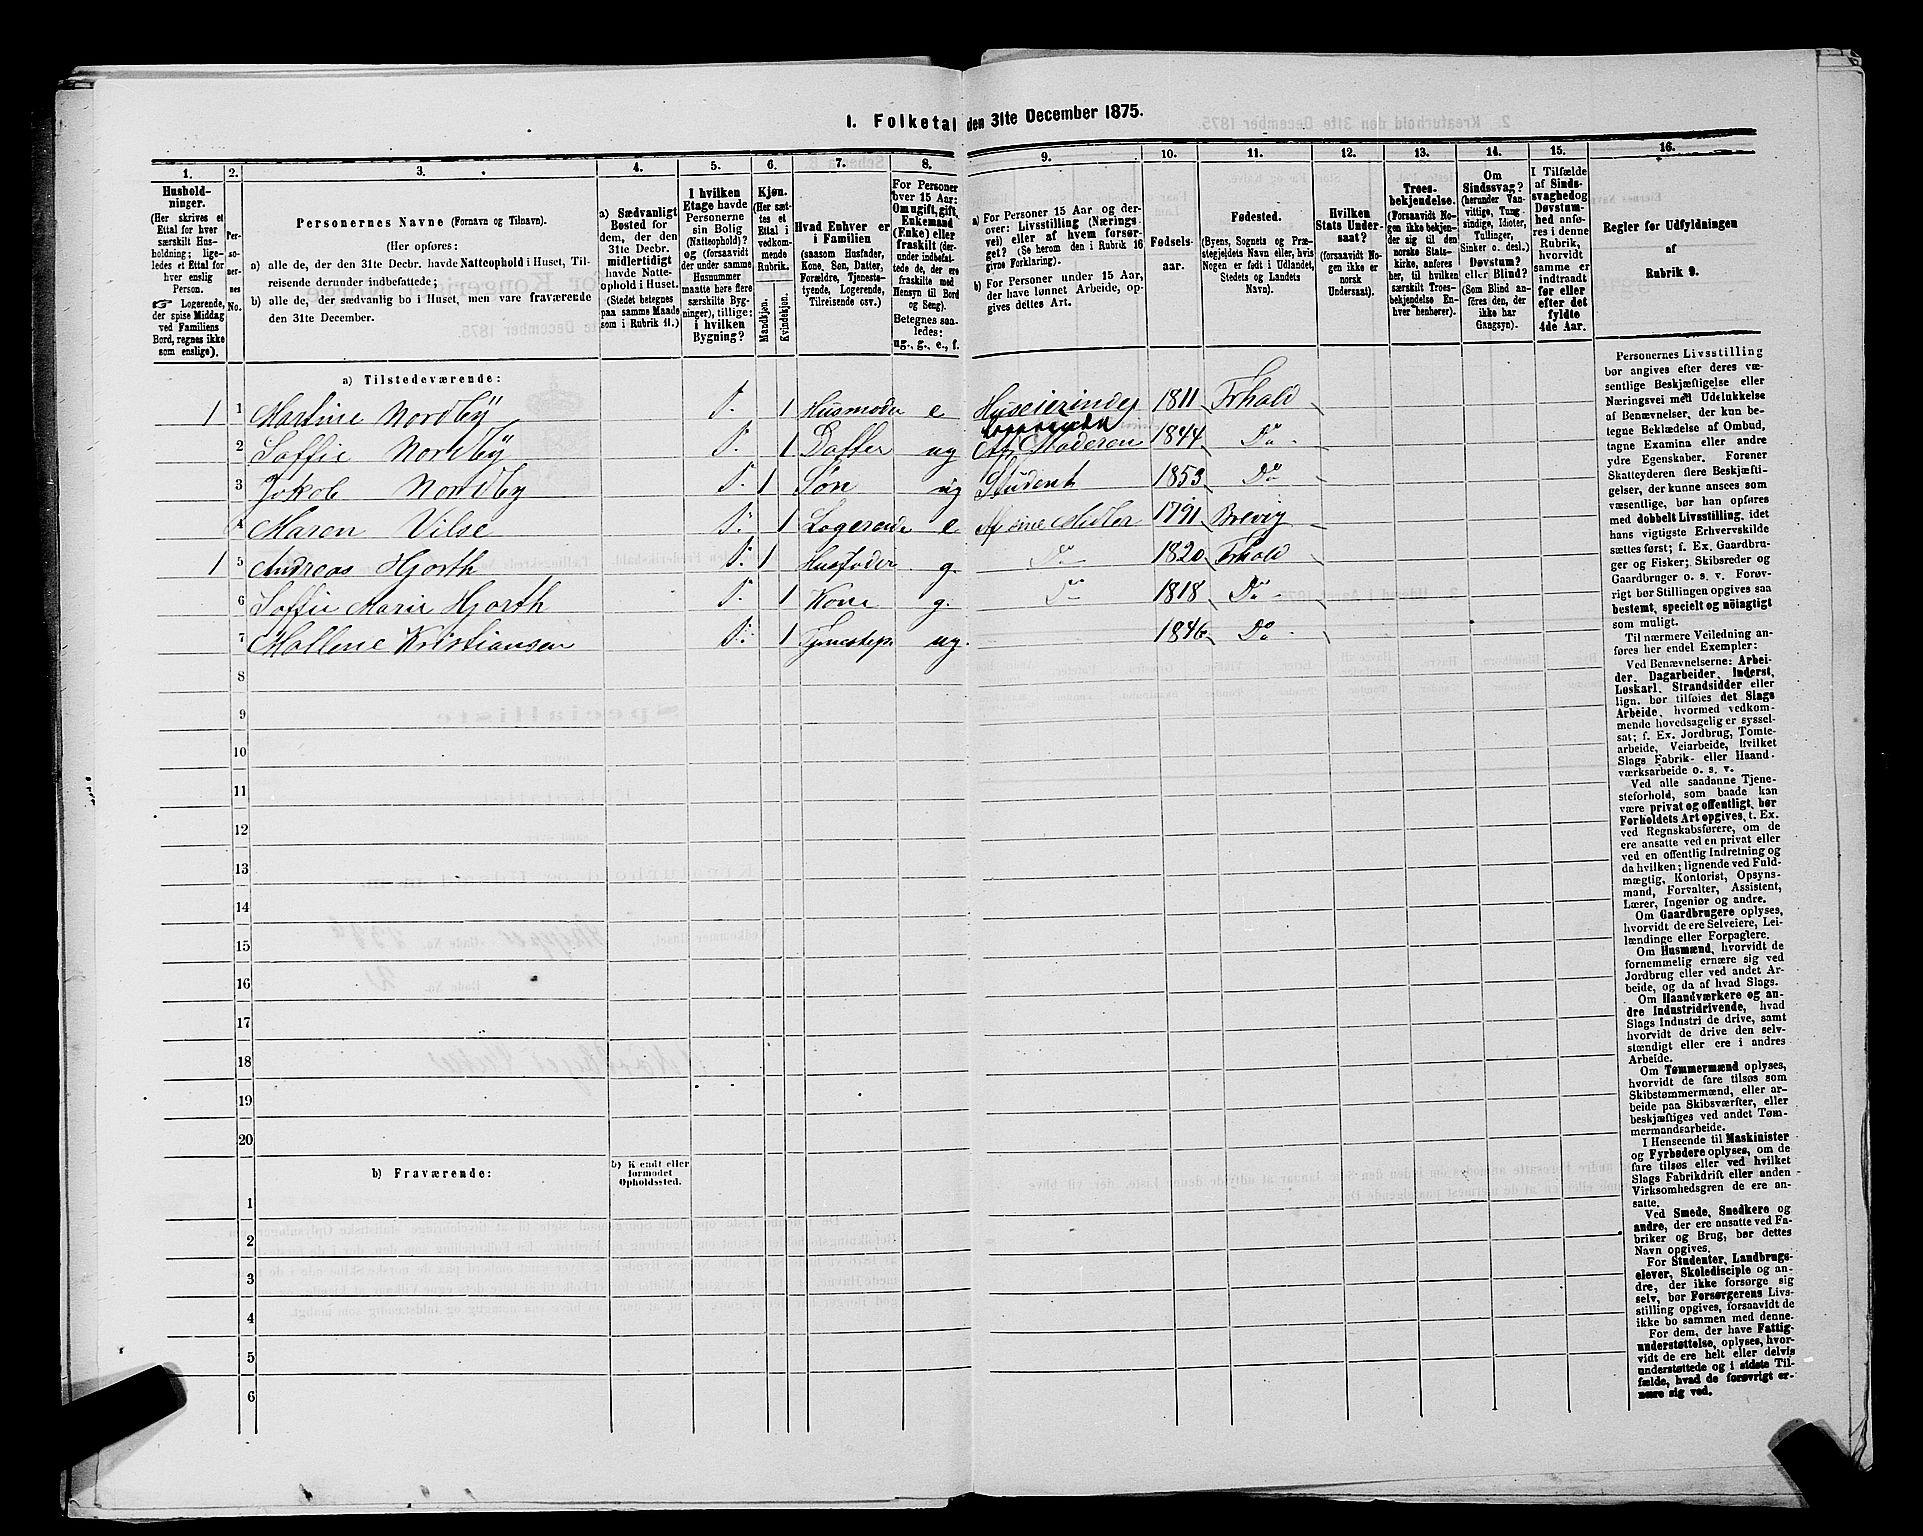 I. Folketal den 31te December 1875.
1. 2. 3. 4. 5. 6. 7. 8. 9. 10. 11. 12. 13. 14. 15. 16.
Hushold-
ninger.
(Her skrives et
Ettal for hver
særskilt Hus-
holdning; lige-
ledes et Ettal for
hver enslig
Person.
☞ Logerende,
der spise Middag
ved Familiens
Bord, regnes ikke
som enslige).
Per-
so-
ner-
nes
No.
Personernes Navne (Fornavn og Tilnavn).
(Her opføres:
a) alle de, der den 31te Decbr. havde Natteophold i Huset, Til-
reisende derunder indbefattede;
b) alle de, der sædvanlig bo i Huset, men vare fraværende
den 31te December.
a) Sædvanligt
Bosted for
dem, der den
31te Decbr.
midlertidigt
havde Natte-
ophold i Huset.
(Stedet betegnes
paa samme Maade
som i Rubrik 11.)
I hvilken
Etage havde
Personerne
sin Bolig
(Natteophold)?
og (forsaavidt
der under samme
Husnummer
maatte høre flere
særskilte Byg-
ninger), tillige:
i hvilken
Bygning?
Kjøn.
(Her sæt-
tes et
Ettal i
vedkom-
mende
Rubrik.
Mandkjøn.
Kvindekjøn.
Hvad Enhver er
i Familien
(saasom Husfader,
Kone, Søn, Datter,
Forældre, Tjeneste-
tyende, Logerende,
Tilreisende osv.)
For Personer
over 15 Aar:
Om ugift, gift,
Enkemand
(Enke) eller
fraskilt (der-
under indbefat-
tede de, der ere
fraskilte med
Hensyn til Bord
og Seng).
Betegnes saa-
ledes:
ug., g., e., f.
a) For Personer 15 Aar og der-
over: Livsstilling (Nærings-
vei) eller af hvem forsør-
get? (Se herom den i Rubrik 16
givne Forklaring).
b) For Personer under 15 Aar,
der have lønnet Arbeide, op-
gives dettes Art.
Fødsels-
aar.
Fødested.
(Byens, Sognets og Præ-
stegjeldets Navn eller, hvis
Nogen er født i Udlandet,
Stedets og Landets
Navn).
Hvilken
Stats Under-
saat?
(forsaavidt
Nogen ikke er
norsk
Undersaat).
Troes-
bekjendelse.
(Forsaavidt No-
gen ikke bekjen-
der sig til den
norske Stats-
kirke, anføres
her, til hvilken
særskilt Troes-
bekjendelse En-
hver henhører).
Om
Sindssvag?
(herunder Van-
vittige, Tung-
sindige, Idioter,
Tullinger,
Sinker o. desl.)
Døvstum?
eller Blind?
(Som Blind an-
føres den, der
ikke har
Gangsyn).
I Tilfælde
af Sinds-
svaghed og
Døvstum-
hed anfø-
res i denne
Rubrik,
hvorvidt
samme er
indtraadt
før eller
efter det
fyldte
4de Aar.
Regler før Udfyldningen
af
Rubrik 9.
a) Tilstedeværende:
1 1 Martine Nordby P. 1 Husmoder e Huseierinde 1811 Frhald
2 Soffie Nordby P. 1 Datter ug Af Moderen 1844 Do
3 Jakob Nordby P. 1 Søn ug Student 1853 Do
4 Maren Vilse P. 1 Logerende e Af sine Midler 1791 Brevig
1 5 Andreas Hjorth P. 1 Husfader g. Do 1820 Frhald
6 Soffie Marie Hjorth P. 1 Kone g. Do 1818 Do
7 Mallene Kristiansen P. 1 Tjenestepi ug. 1846 Do
8
9
10
11
12
13
14
15
16
17
18
19
20
b) Fraværende:
b) Kjendt eller
formodet
Opholdssted.
1
2
3
4
5
6
Personernes Livsstilling
bør angives efter deres væ-
sentlige Beskjæftigelse eller
Næringsvei med Udelukkelse
af Benævnelser, der kun be-
tegne Beklædelse af Ombud,
tagne Examina eller andre
ydre Egenskaber. Forener
Skatteyderen flere Beskjæfti-
gelser, der kunne ansees som
væsentlige, bør han opføres
med dobbelt Livsstilling, idet
hans vigtigste Erhvervskilde
sættes først; f. Ex. Gaardbru-
ger og Fisker; Skibsreder og
Gaardbruger o. s. v. Forøv-
rigt bør Stillingen opgives saa
bestemt, specielt og nöiagtigt
som muligt.
Til nærmere Veiledning an-
føres her endel Exempler:
Ved Benævnelserne: Arbei-
der, Dagarbeider, Inderst,
Løskarl, Strandsidder eller
lign. bør tilføies det Slags
Arbeide, hvormed vedkom-
mende hovedsagelig er syssel-
sat; f. Ex. Jordbrug, Tomte-
arbeide, Veiarbeide, hvilket
Slags Fabrik- eller Haand-
værksarbeide o. s. v.
Ved alle saadanne Tjene-
steforhold, som baade kan
være privat og offentligt, bør
Forholdets Art opgives, t. Ex.
ved Regnskabsførere, om de
ere ansatte ved en privat eller
ved en offentlig Indretning og
da hvilken; lignende ved Fuld-
mægtig, Kontorist, Opsyns-
mand, Forvalter, Assistent,
Lærer, Ingeniør og andre.
Om Gaardbrugere oplyses,
hvorvidt de ere Selveiere, Lei-
lændinge eller Forpagtere.
Om Husmænd, hvorvidt de
fornemmelig ernære sig ved
Jordbrug eller ved andet Ar-
beide, og da af hvad Slags.
Om Haandværkere og an-
dre Industridrivende, hvad
Slags Industri de drive, samt
hvorvidt de drive den selv-
stændigt eller ere i andres
Arbeide.
Om Tømmermænd oplyses,
hvorvidt de fare tilsøs som
Skibstømmermænd, eller ar-
beide paa Skibsværfter, eller
beskjæftiges ved andet Tøm-
mermandsarbeide.
I Henseende til Maskinister
og Fyrbødere oplyses, om de
fare tilsøs eller ved hvilket
Slags Fabrikdrift eller anden
Virksomhedsgren de ere an-
satte.
Ved Smede, Snedkere og
andre, der ere ansatte ved Fa-
briker og Brug, bør dettes
Navn opgives.
For Studenter, Landbrugs-
elever, Skoledisciple og an-
dre, der ikke forsørge sig
selv, bør Forsørgerens Livs-
stilling opgives, forsaavidt de
ikke bo sammen med denne.
For dem, der have Fattig-
understøttelse, oplyses, hvor-
vidt de ere helt eller delvis
understøttede og i sidste Til-
fælde, hvad de forøvrigt er-
nære sig ved.